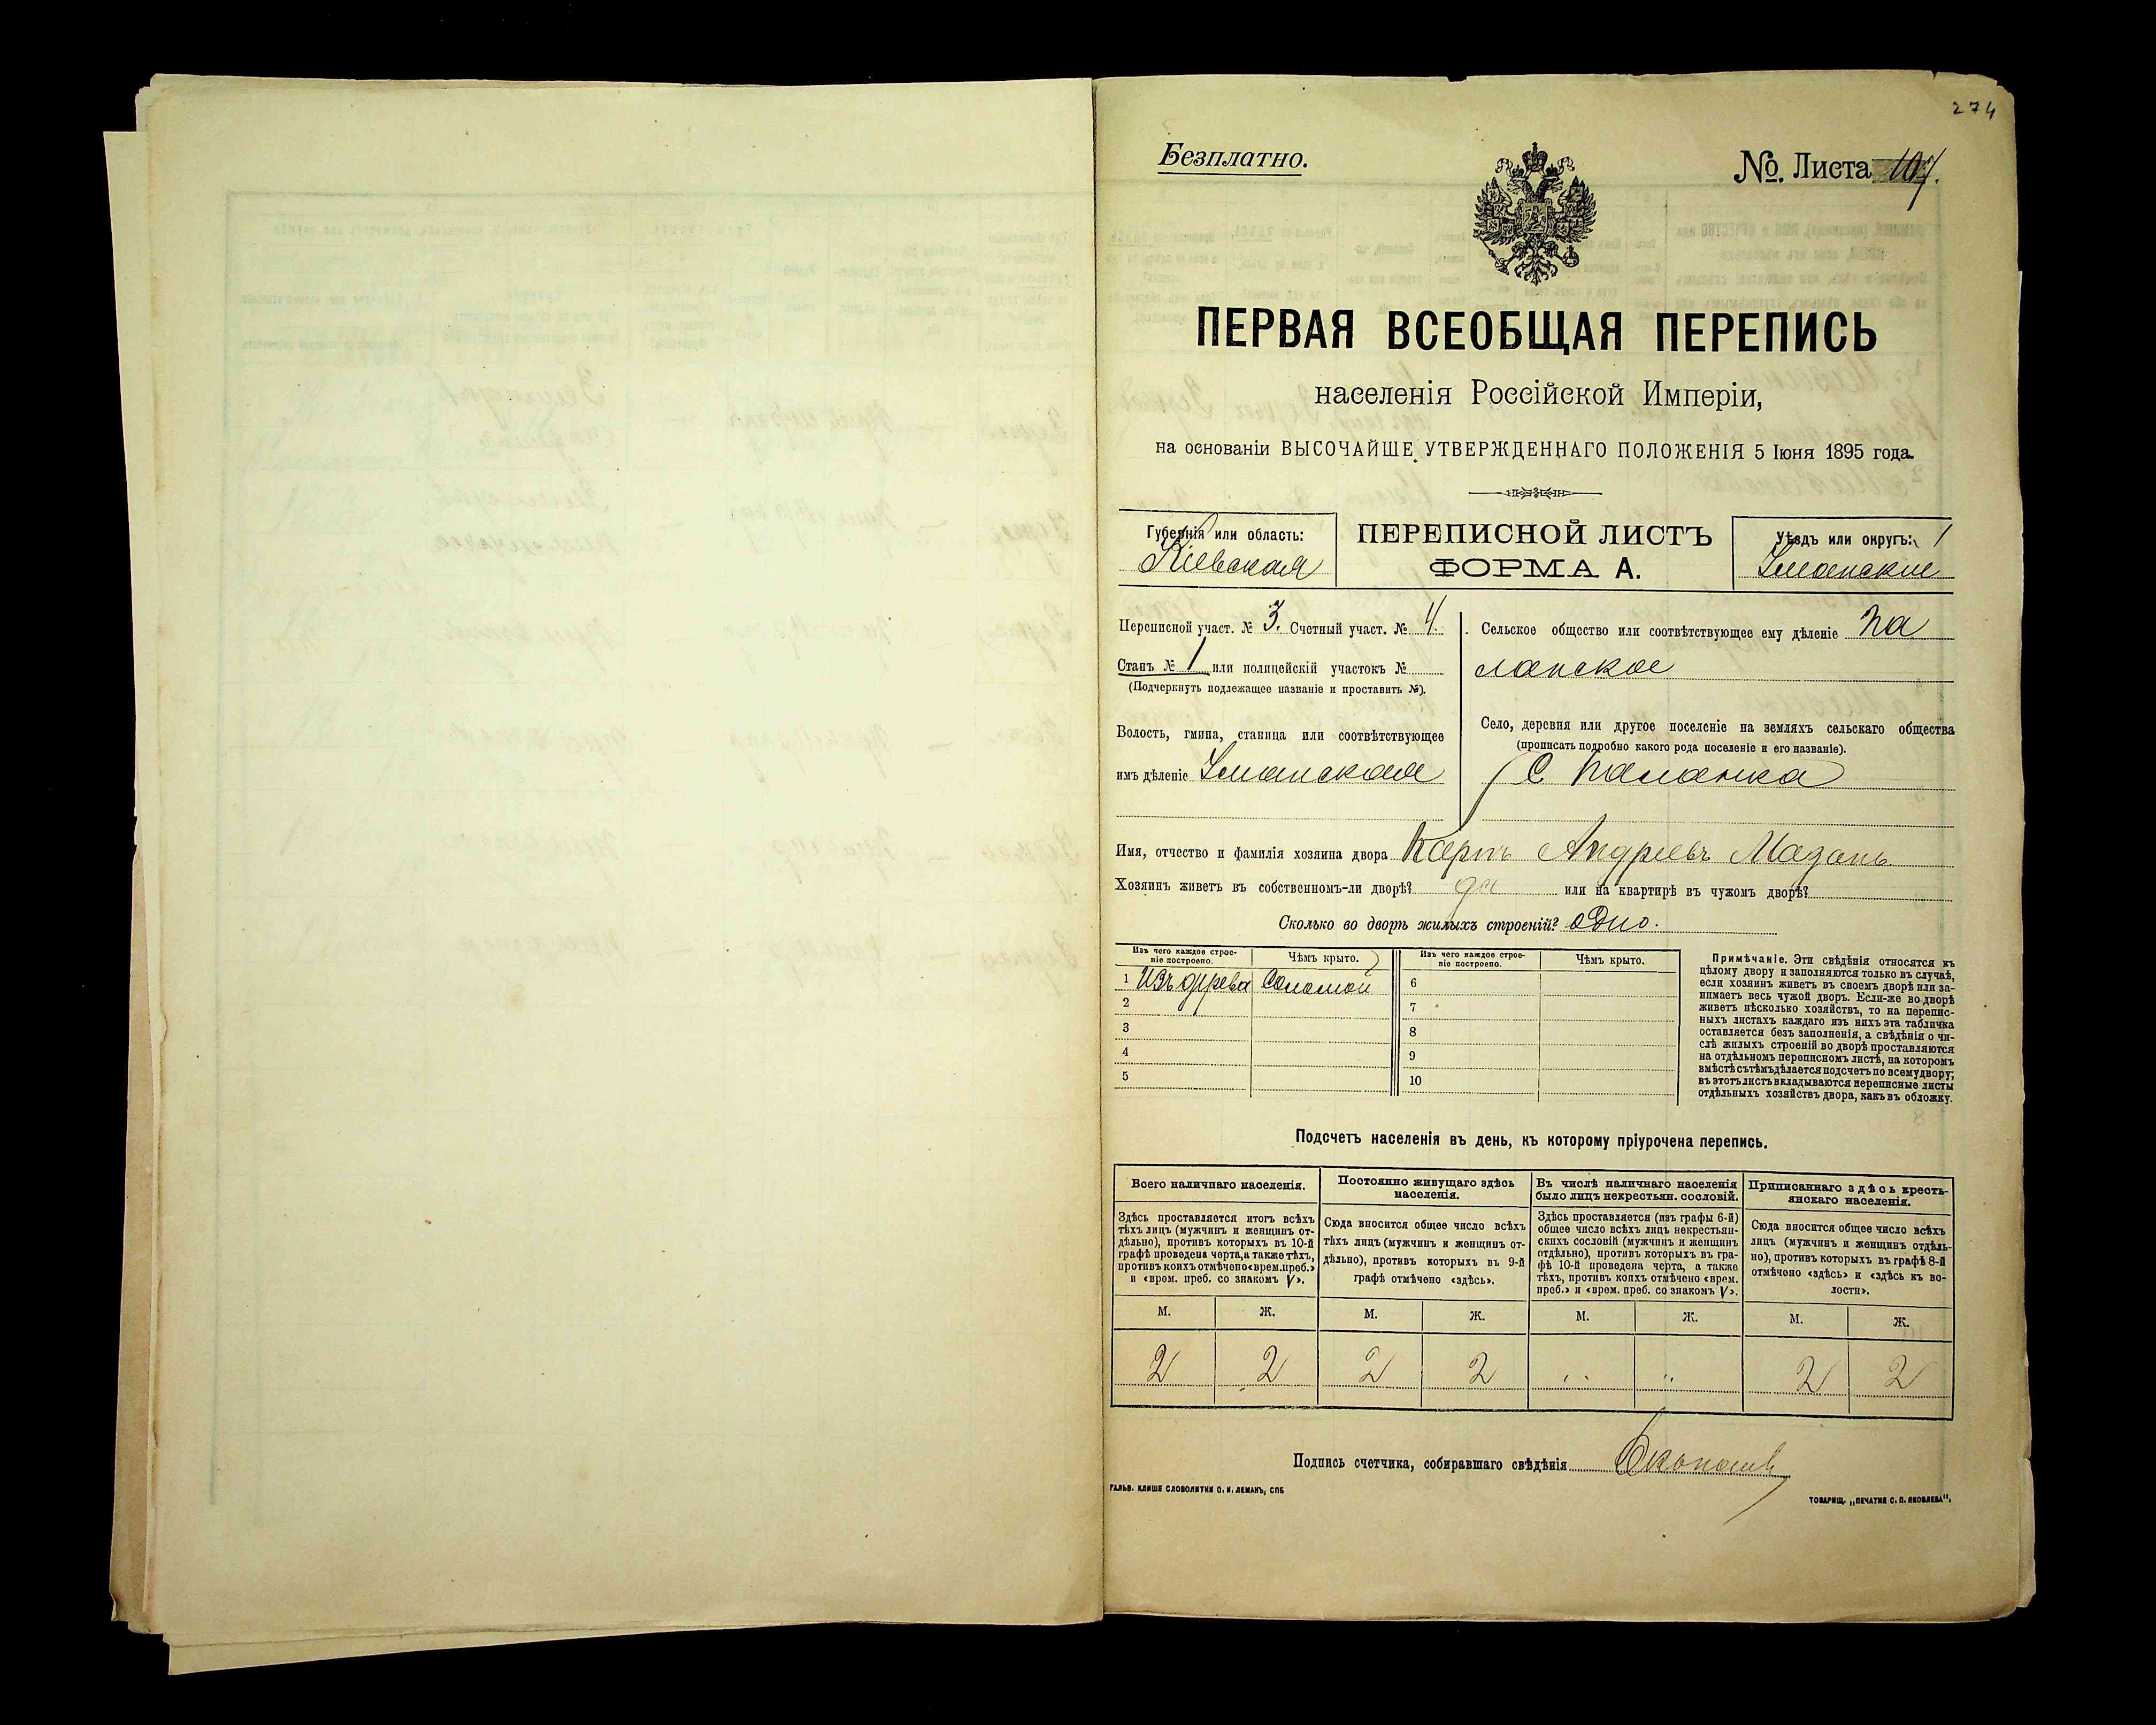 274
Безплатно.
№. Листа 107.
ПЕРВАЯ ВСЕОБЩАЯ ПЕРЕПИСЬ
населенія Россійской Имперіи,
на основаніи ВЫСОЧАЙШЕ УТВЕРЖДЕННАГО ПОЛОЖЕНІЯ 5 Іюня 1895 года.
Губернія или область:
Кіевская
ПЕРЕПИСНОЙ ЛИСТЪ
ФОРМА А.
Уѣздъ или округъ:
Уманскій
Переписной участ. № 3. Счетный участ. № 4.
Станъ № 1 или полицейскій участокъ №
(Подчеркнуть подлежащее названіе и проставить №).
Волость, гмина, станица или соотвѣтствующее
имъ дѣленіе Уманская
Сельское общество или соотвѣтствующее ему дѣленіе Па
ланское
Село, деревня или другое поселеніе на земляхъ сельскаго общества
(прописать подробно какого рода поселеніе и его названіе).
С Паланка
Имя, отчество и фамилія хозяина двора Карпъ Андреевъ Мазанъ
Хозяинъ живетъ въ собственномъ-ли дворѣ? да или на квартирѣ въ чужомъ дворѣ?
Сколько во дворѣ жилыхъ строеній? одно.
Изъ чего каждое строе-
ніе построено.
Чѣмъ крыто.
Изъ чего каждое строе-
ніе построено.
Чѣмъ крыто.
1 Изъ дерева Соломой
2
3
4
5
6
7
8
9
10
Примѣчаніе. Эти свѣдѣнія относятся къ
цѣлому двору и заполняются только въ случаѣ,
если хозяинъ живетъ въ своемъ дворѣ или за-
нимаетъ весь чужой дворъ. Если-же во дворѣ
живетъ нѣсколько хозяйствъ, то на перепис-
ныхъ листахъ каждаго изъ нихъ эта табличка
оставляется безъ заполненія, а свѣдѣнія о чи-
слѣ жилыхъ строеній во дворѣ проставляются
на отдѣльномъ переписномъ листѣ, на которомъ
вмѣстѣ съ тѣмъ дѣлается подсчетъ по всему двору;
въ этотъ листъ вкладываются переписные листы
отдѣльныхъ хозяйствъ двора, какъ въ обложку.
Подсчетъ населенія въ день, къ которому пріурочена перепись.
Всего наличнаго населенія.
Здѣсь проставляется итогъ всѣхъ
тѣхъ лицъ (мужчинъ и женщинъ от-
дѣльно), противъ которыхъ въ 10-й
графѣ проведена черта, а также тѣхъ,
противъ коихъ отмѣчено «врем. преб.»
и «врем. преб. со знакомъ V».
Постоянно живущаго здѣсь
населенія.
Сюда вносится общее число всѣхъ
тѣхъ лицъ (мужчинъ и женщинъ от-
дѣльно), противъ которыхъ въ 9-й
графѣ отмѣчено «здѣсь».
Въ числѣ наличнаго населенія
было лицъ некрестьян. сословій.
Здѣсь проставляется (изъ графы 6-й)
общее число всѣхъ лицъ некрестьян-
скихъ сословій (мужчинъ и женщинъ
отдѣльно), противъ которыхъ въ гра-
фѣ 10-й проведена черта, а также
тѣхъ, противъ коихъ отмѣчено «врем.
преб.» и «врем. преб. со знакомъ V».
Приписаннаго здѣсь кресть-
янскаго населенія.
Сюда вносится общее число всѣхъ
лицъ (мужчинъ и женщинъ отдѣль-
но), противъ которыхъ въ графѣ 8-й
отмѣчено «здѣсь» и «здѣсь къ во-
лости».
М. Ж. М. Ж. М. Ж. М. Ж.
2 2 2 2 „ „ 2 2
Подпись счетчика, собиравшаго свѣдѣнія
ГАЛЬВ. КЛИШЕ СЛОВОЛИТНИ О. И. ЛЕМАНЪ, СПБ
ТОВАРИЩ. „ПЕЧАТНЯ С. П. ЯКОВЛЕВА".